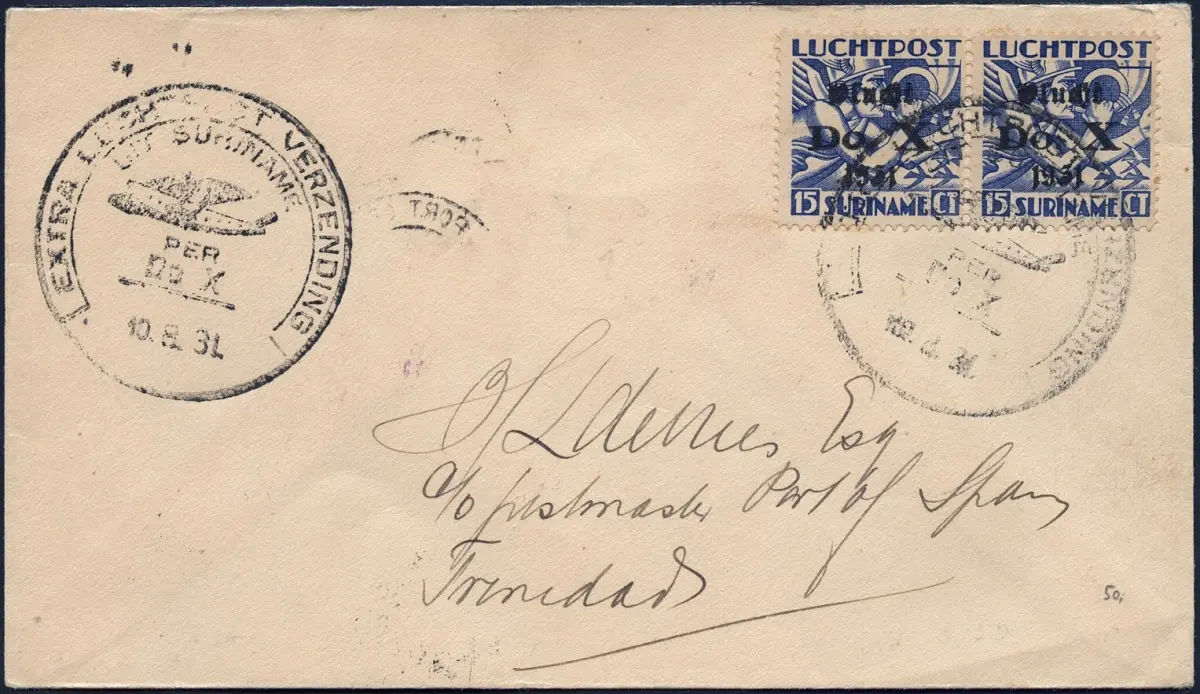 EXTRA LUCHTPOST VERZENDING
UIT SURINAME
PER
DO X
10.8.31.
PORT
LUCHTPOST
Vlucht
Do. X
1931
15 SURINAME CT
LUCHTPOST
Vlucht
Do. X
1931
15 SURINAME CT
PER
DO X
Esq
c/o postmaster Port of Spain
Trinidad
50,